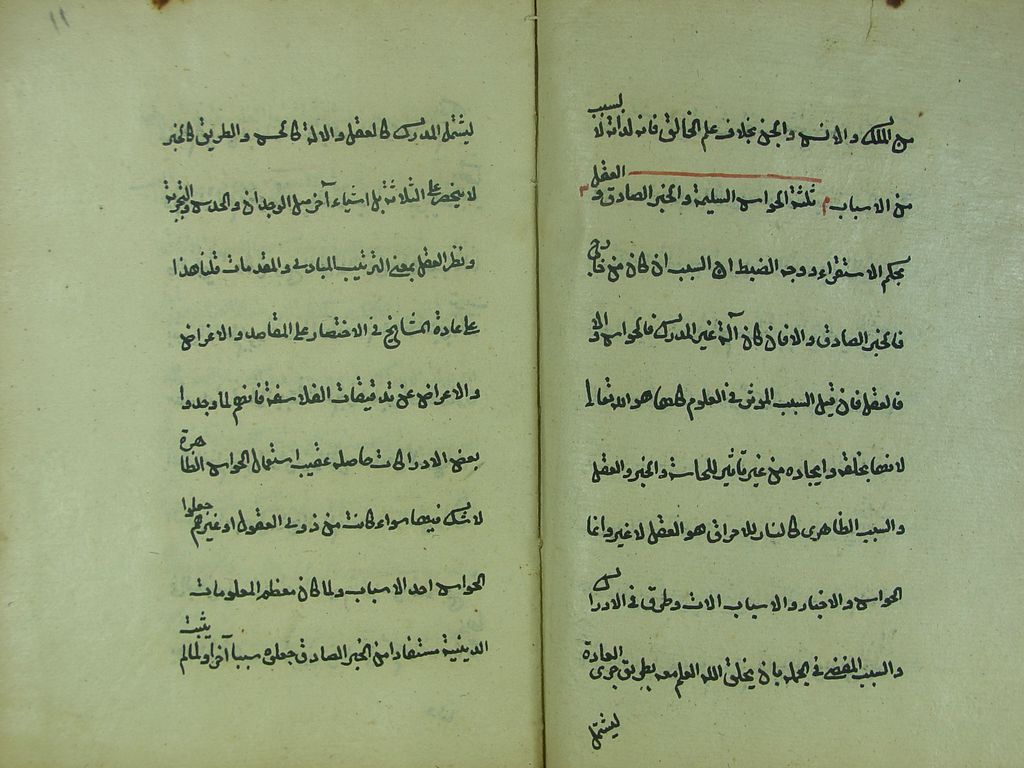 من الملك والانس والجن بخلاف علم الخالق فانه لذاته لا لسبب
من الاسباب م ثلثة الحواس السليمة والخبر الصادق و العقل م
بحكم الاستقراء ووجه الضبط ان السبب ان كان من خارج
فالخبر الصادق والا فان كان آلة غير المدرك فالحواس والا
فالعقل فان قيل السبب الموثر في العلوم كلها هو الله تعالى
لانها بخلقه وايجاده من غير تاثير للحاسة والخبر والعقل
والسبب الظاهرى كالنار للاحراق هو العقل لا غير وانما
الحواس والاخبار والاسباب الات وطرق في الادراك
والسبب المفضى في الجمله بان يخلق الله العلم معه بطريق جرى العادة
ليشتمل
ليشتمل المدرك كالعقل والالة كالحس والطريق كالخبر
لا ينحصر على الثلاثة بل اشياء آخر مثل الوجدان والحدس والتجربة
ونظر العقل بمعنى الترتيب المبادى والمقدمات قلنا هذا
على عادة المشايخ في الاختصار على المقاصد والاغراض
والاعراض عن تدقيقات الفلاسفة فانهم لما وجدوا
بعض الادراكات حاصله عقيب استعمال الحواس الظاهرة
لا شك فيها سواء كانت من ذوى العقول او غيرهم جعلوا
الحواس احد الاسباب ولما كان معظم المعلومات
الدينية مستفادا من الخبر الصادق جعلوه سببا آخر ولما لم يثبت
١١